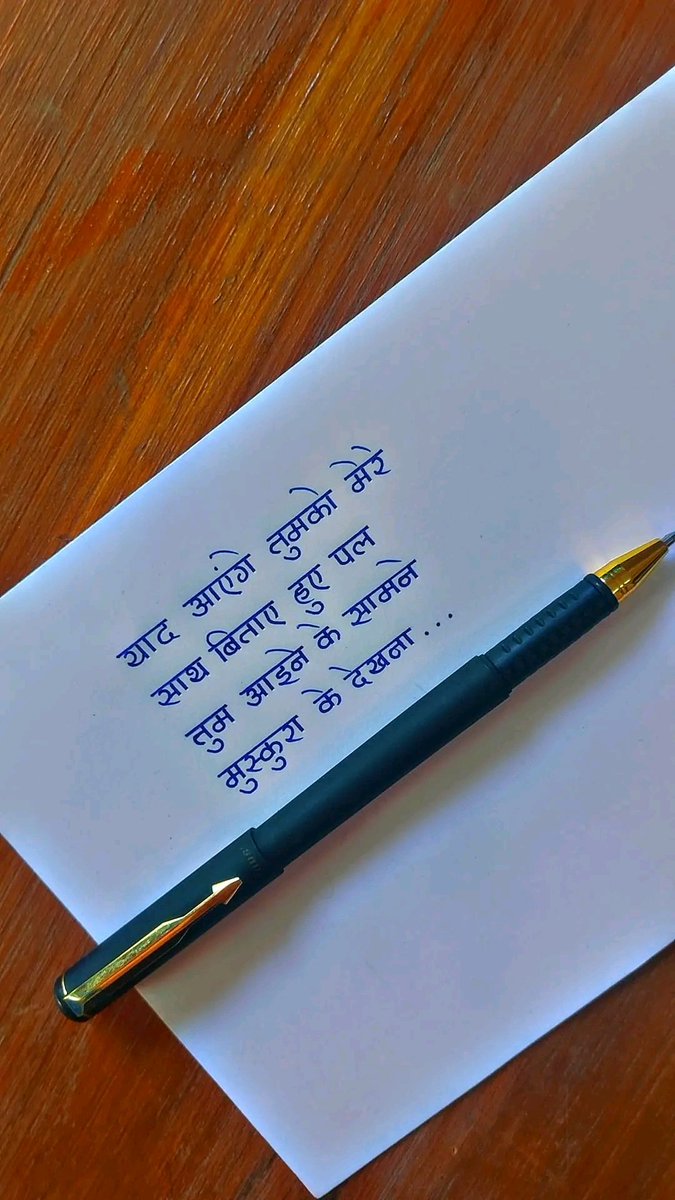 याद आएंगे तुमको मेरे
साथ बिताए हुए पल
तुम आइने के सामने
मुस्कुरा के देखना...